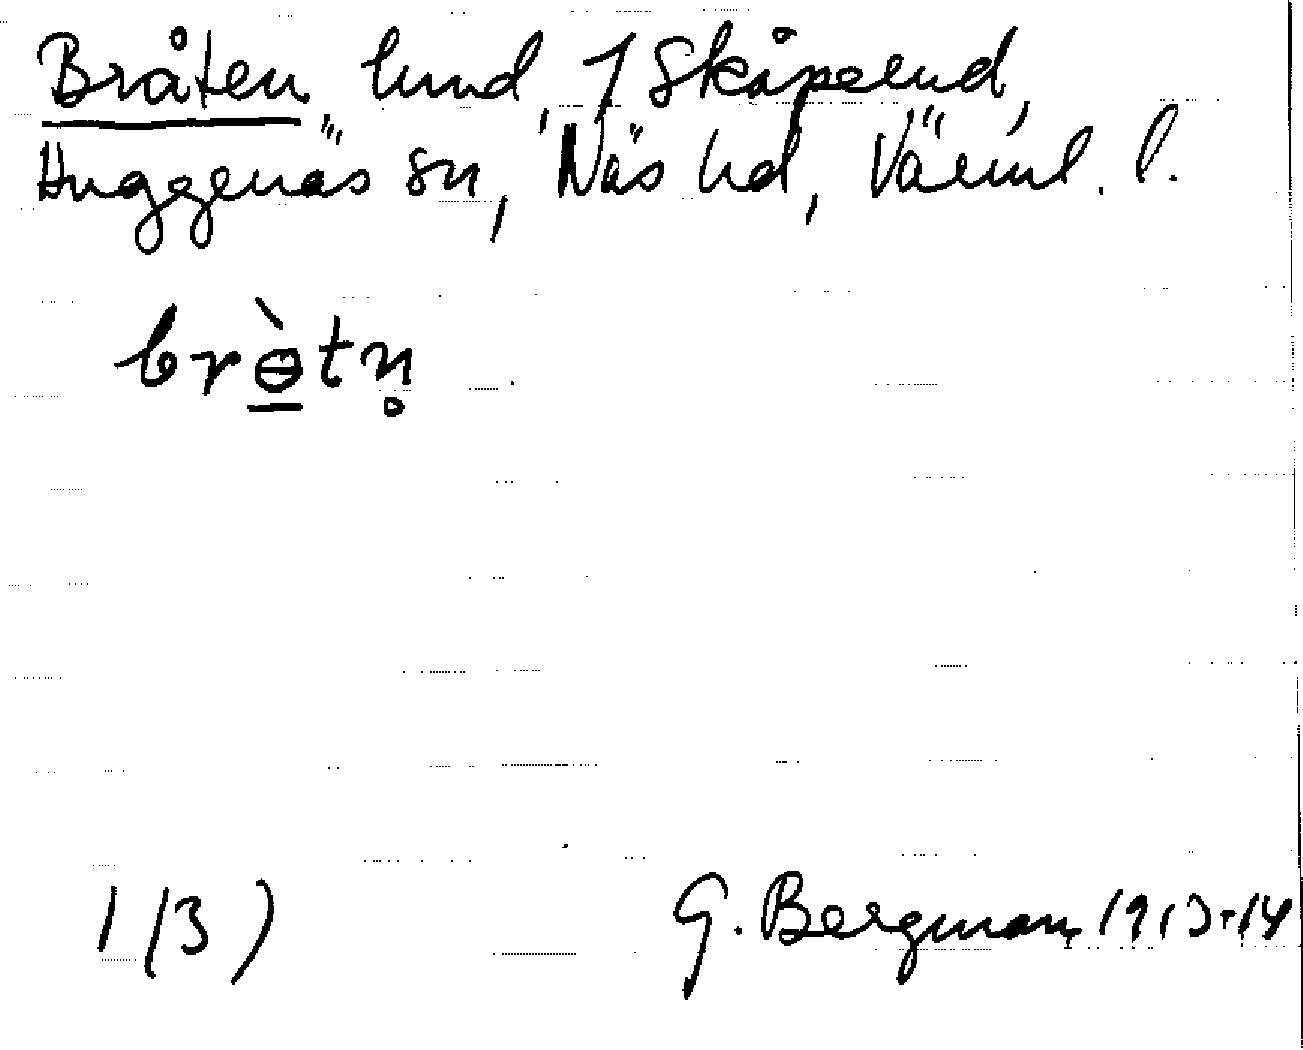 Bråten, lund, 1 Skåpelud,
Huggenäs sn, Näs hd, Värml. l.
brɵ̀tn̥
1 (3)
G. Bergman 1913-14